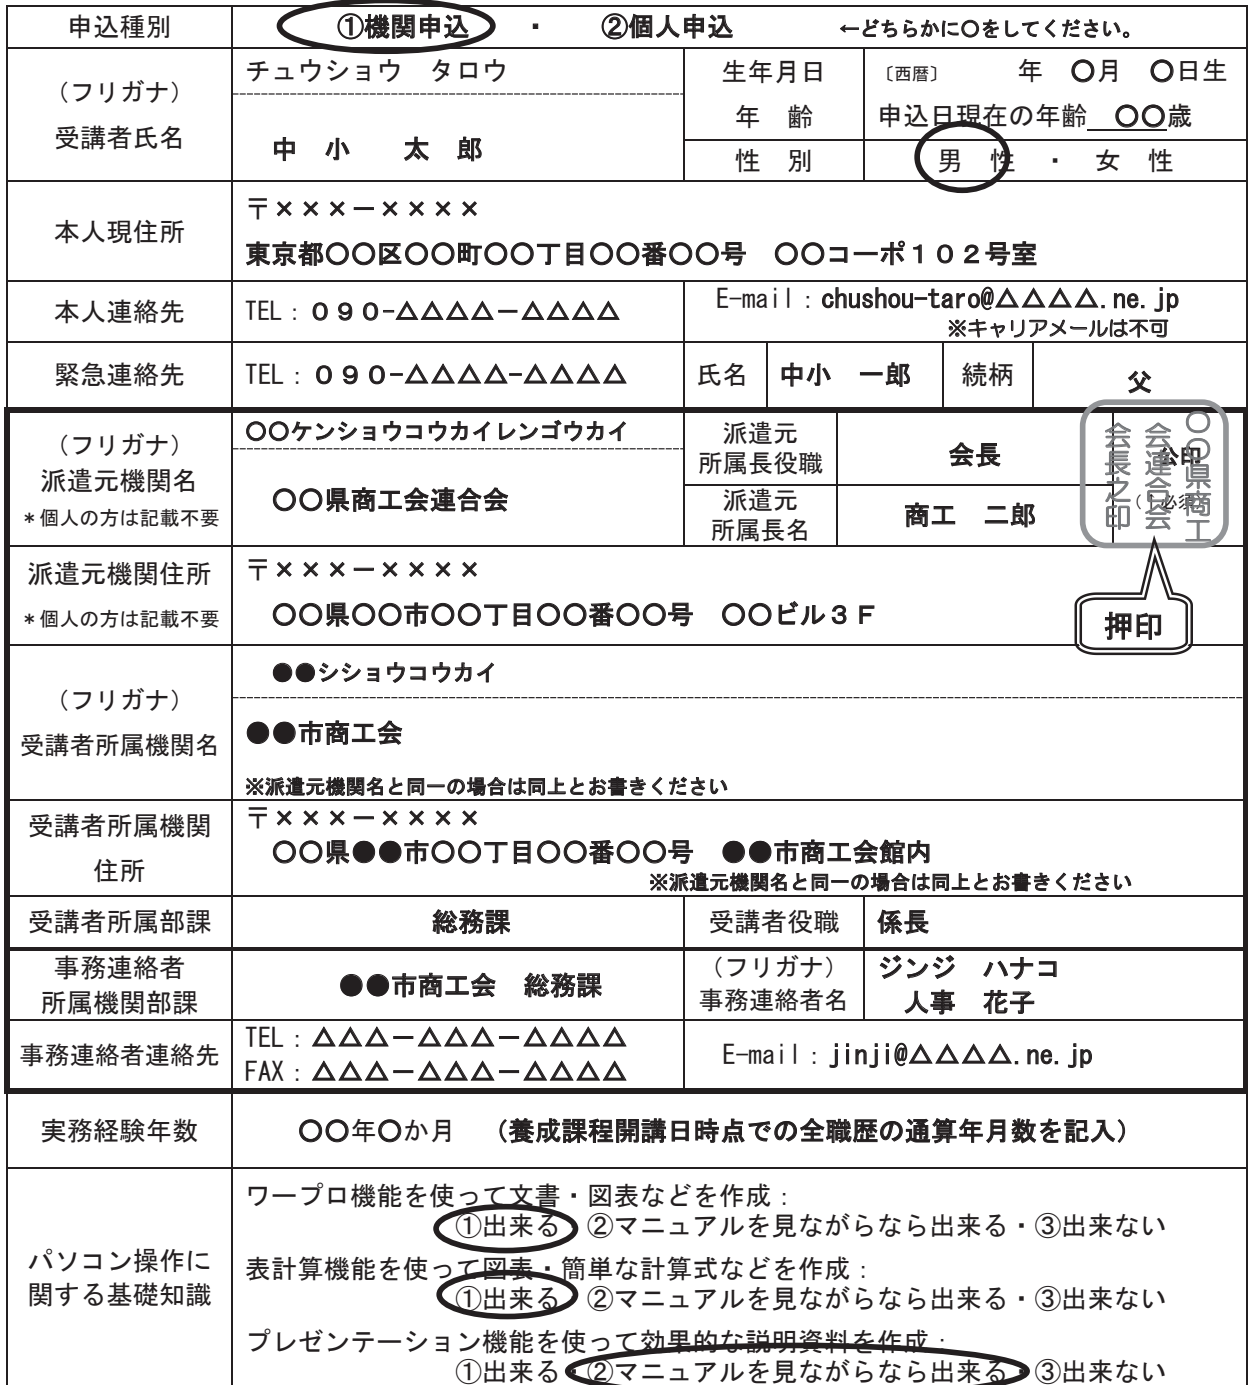 申込種別 ①機関申込 ・ ②個人申込 ←どちらかに○をしてください。
（フリガナ）
受講者氏名
チュウショウ タロウ
中 小 太 郎
生年月日 〔西暦〕 年 ○月 ○日生
年 齢 申込日現在の年齢 ○○歳
性 別 男 性 ・ 女 性
本人現住所
〒×××－××××
東京都○○区○○町○○丁目○○番○○号 ○○コーポ１０２号室
本人連絡先 TEL：０９０-△△△△－△△△△
E-mail：chushou-taro@△△△△.ne.jp
※キャリアメールは不可
緊急連絡先 TEL：０９０-△△△△-△△△△ 氏名 中小 一郎 続柄 父
（フリガナ）
派遣元機関名
＊個人の方は記載不要
○○ケンショウコウカイレンゴウカイ
○○県商工会連合会
派遣元
所属長役職
会長
公印
派遣元
所属長名
商工 二郎
○○県商工
会連合会
会長之印
押印
派遣元機関住所
＊個人の方は記載不要
〒×××－××××
○○県○○市○○丁目○○番○○号 ○○ビル３Ｆ
（フリガナ）
受講者所属機関名
●●シショウコウカイ
●●市商工会
※派遣元機関名と同一の場合は同上とお書きください
受講者所属機関
住所
〒×××－××××
○○県●●市○○丁目○○番○○号 ●●市商工会館内
※派遣元機関名と同一の場合は同上とお書きください
受講者所属部課 総務課 受講者役職 係長
事務連絡者
所属機関部課
●●市商工会 総務課
（フリガナ）
事務連絡者名
ジンジ ハナコ
人事 花子
事務連絡者連絡先
TEL：△△△－△△△－△△△△
FAX：△△△－△△△－△△△△
E-mail：jinji@△△△△.ne.jp
実務経験年数 ○○年○か月 （養成課程開講日時点での全職歴の通算年月数を記入）
パソコン操作に
関する基礎知識
ワープロ機能を使って文書・図表などを作成：
①出来る ②マニュアルを見ながらなら出来る・③出来ない
表計算機能を使って図表・簡単な計算式などを作成：
①出来る ②マニュアルを見ながらなら出来る・③出来ない
プレゼンテーション機能を使って効果的な説明資料を作成：
①出来る・②マニュアルを見ながらなら出来る・③出来ない